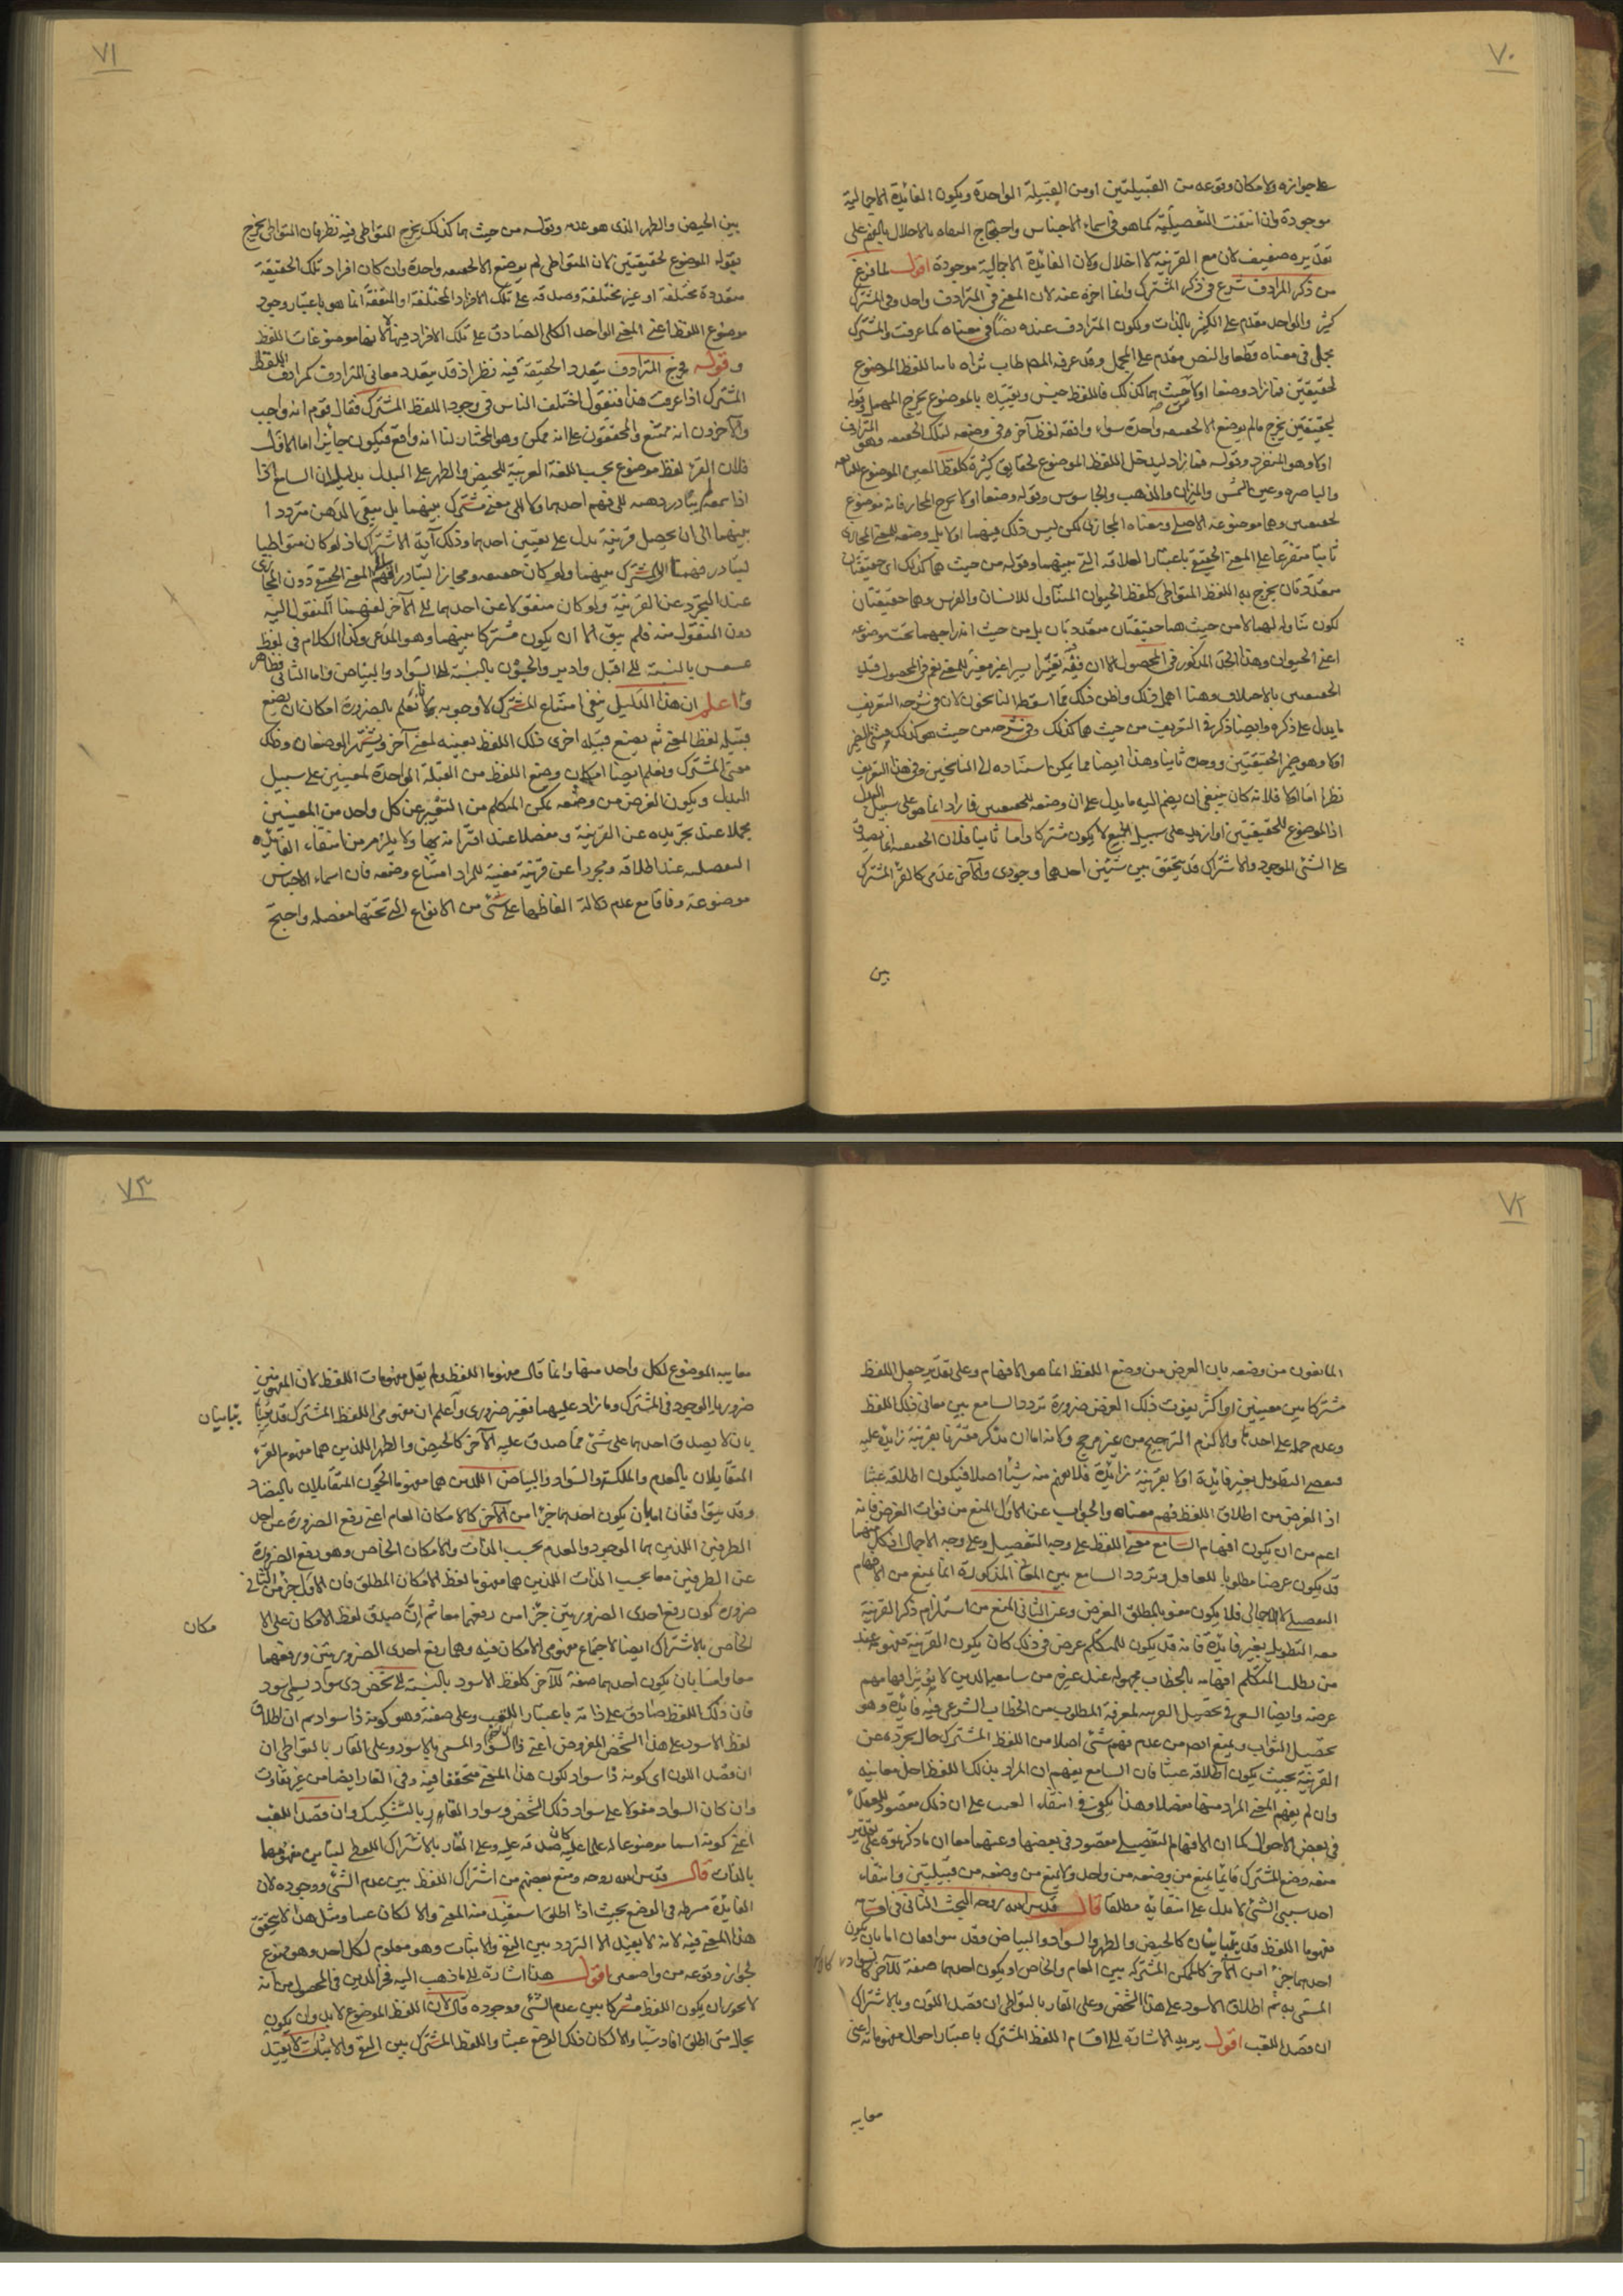 ٧٠
على جوازه ولامكان وقوعه من القبيلتين او من القبيلة الواحدة ويكون الفائدة الاجمالية
موجودة وان انتفت التفصيلية كما هو في اسماء الاجناس واحتجاج النفاة بالاخلال بالفهم على
تقديره ضعيف لان مع القرينة لا اخلال ولان الفائدة الاجمالية موجودة اقول لما فرغ
من ذكر المرادف شرع في ذكر المشترك وانما اخره عنه لان المعنى في المترادف واحد وفي المشترك
كثير والواحد مقدم على الكثير بالذات ولكون المترادف عنده نصا في معناه كما عرفت والمشترك
مجمل في معناه قطعا والنص مقدم على المجمل وقد عرفه المصـ طاب ثراه بانه اللفظ الموضوع
لحقيقتين فما زاد وضعا اولا من حيث هما كذلك فاللفظ جنس وتقييده بالموضوع يخرج المهمل وقوله
لحقيقتين يخرج مالم يوضع الا لحقيقة واحدة سواء وافقه لفظ آخر في وضعه لتلك الحقيقة وهو المترادف
اولا وهو المنفرد وقوله فما زاد ليدخل اللفظ الموضوع لحقايق كثيرة كلفظ العين الموضوع للنابعه
والباصره وعين الشمس والميزان والذهب والجاسوس وقوله وضعا اولا يخرج المجاز فانه موضوع
لحقيقتين وهما موضوعه الاصلي ومعناه المجازي لكن ليس ذلك فيهما اولا بل وضعه للمعنى المجازي
ثانيا متفرعا على المعنى الحقيقي باعتبار العلاقة التي بينهما وقوله من حيث هما كذلك اى حقيقتان
متعددتان يخرج به اللفظ المتواطي كلفظ الحيوان المتناول للانسان والفرس وهما حقيقتان
لكون تناوله لهما لا من حيث هما حقيقتان متعددتان بل من حيث اندراجهما تحت موضوعه
اعني الحيوان وهذا الحد المذكور في المحصول الا ان فيه تغيرا يسيرا غير مغير للمعنى نعم في المحصول قيد
الحقيقتين بالاختلاف وهنا اهمل ذلك واظن ذلك مما اسقطه الناسخون لان في شرحه التعريف
ما يدل على ذكره وايضا ذكر في التعريف من حيث هما كذلك وفي شرحه من حيث هو كذلك فثنى الضمير
اولا وهو ضمير الحقيقتين ووحده ثانيا وهذا ايضا مما يمكن اسناده الى الناسخين وفي هذا التعريف
نظر اما اولا فلانه كان ينبغي ان يضم اليه ما يدل على ان وضعه للحقيقتين فما زاد انما هو على سبيل البدل
اذ الموضوع للحقيقتين او ازيد على سبيل الجمع لا يكون مشتركا واما ثانيا فلان الحقيقة انما يصدق
على الشئ الموجود والاشتراك قد يتحقق بين شيئين احدهما وجودي والآخر عدمي كالقرء المشترك
بين
٧١
بين الحيض والطهر الذي هو عدمه وقوله من حيث هما كذلك يخرج المتواطي فيه نظر فان المتواطي يخرج
بقوله الموضوع لحقيقتين لان المتواطي لم يوضع الا لحقيقة واحدة وان كان افراد تلك الحقيقة
متعددة مختلفة او غير مختلفة وصدقه على تلك الافراد المختلفة او المتفقة انما هو باعتبار وجود
موضوع اللفظ اعني المعنى الواحد الكلى الصادق على تلك الافراد فيها لا انها موضوعات اللفظ
وقوله يخرج المترادف بتعدد الحقيقة فيه نظر اذ قد يتعدد معاني المترادف كمرادف اللفظ
المشترك اذا عرفت هذا فنقول اختلف الناس في وجود اللفظ المشترك فقال قوم انه واجب
وآخرون انه ممتنع والمحققون على انه ممكن وهو المختار لنا انه واقع فيكون جايزا اما الاول
فلان القرء لفظ موضوع بحسب اللغة العربية للحيض والطهر على البدل بدليل ان السامع اذا
اذا سمعه لم يتبادر ذهنه الى فهم احدهما ولا الى معنى مشترك بينهما بل يبقى الذهن مترددا
بينهما الى ان يحصل قرينة تدل على تعيين احدهما وذلك آية الاشتراك اذ لو كان متواطيا
لتبادر فهمنا الى المشترك بينهما ولو كان حقيقة ومجازا لتبادر الى الفهم المعنى الحقيقي دون المجازي
عند التجرد عن القرينة ولو كان منقولا عن احدهما الى الآخر لفهمنا المنقول اليه
دون المنقول منه فلم يبق الا ان يكون مشتركا بينهما وهو المدعى وكذا الكلام في لفظ
عسعس بالنسبة الى اقبل وادبر والجون بالنسبة الى السواد والبياض واما الثاني فظاهر
واعلم ان هذا الدليل ينفي امتناع المشترك لا وجوبه ولانا نعلم بالضرورة امكان ان يضع
قبيلة لفظا لمعنى ثم يضع قبيلة اخرى ذلك اللفظ بعينه لمعنى آخر ويشتهر الوضعان وذلك
معنى المشترك ونعلم ايضا امكان وضع اللفظ من القبيلة الواحدة لمعنيين على سبيل
البدل ويكون الغرض من وضعه تمكن المتكلم من التعبير عن كل واحد من المعنيين
مجملا عند تجريده عن القرينة ومفصلا عند اقترانه بها ولا يلزم من انتفاء الفائدة
التفصيلية عند اطلاقه مجردا عن قرينة معينة للمراد امتناع وضعه فان اسماء الاجناس
موضوعة وفاقا مع عدم دلالة الفاظها على شئ من الانواع التي تحتها مفصلة واحتج
٧٢
المانعون من وضعه بان الغرض من وضع اللفظ انما هو الافهام وعلى تقدير جعل اللفظ
مشتركا بين معنيين او اكثر يفوت ذلك الغرض ضرورة تردد السامع بين معاني ذلك اللفظ
وعدم حمله على احدها والا لزم الترجيح من غير مرجح ولانه اما ان يذكر مقترنا بقرينة زايدة عليه
فيقتضي التطويل بغير فايدة اولا بقرينة زايدة فلا يفهم منه شيئا اصلا فيكون اطلاقه عبثا
اذ الغرض من اطلاق اللفظ فهم معناه والجواب عن الاول المنع من فوات الغرض فانه
اعم من ان يكون افهام السامع معنى اللفظ على وجه التفصيل وعلى وجه الاجمال اذ كل منهما
قد يكون غرضا مطلوبا للعاقل وتردد السامع بين المعاني المذكورة انما يمنع من الافهام
التفصيلي لا الاجمالي فلا يكون مفوتا لمطلق الغرض وعن الثاني المنع من استلزام ذكر القرينة
معه التطويل بغير فايدة فانه قد يكون للمتكلم غرض في ذلك كان يكون القرينة مفهومة عند
من يطلب المتكلم افهامه بالخطاب مجهولة عند غيره من سامعيه الذين لا يؤثر افهامهم
غرضه وايضا السعي في تحصيل القرينة لمعرفة المطلوب من الخطاب الشرعي فيه فايدة وهو
تحصيل الثواب ويمنع ايضا من عدم فهم شئ اصلا من اللفظ المشترك حال تجرده عن
القرينة بحيث يكون اطلاقه عبثا فان السامع يفهم ان المراد بذلك اللفظ احد معانيه
وان لم يفهم المعنى المراد منها مفصلا وهذا يكفي في انتفاء العبث على ان ذلك مقصود للعقلاء
في بعض الاحوال كما ان الافهام التفصيلي مقصود في بعضها وعنهما معا ان ما ذكرتموه على تقدير
منعه وضع المشترك فانما يمنع من وضعه من واحد ولا يمنع من وضعه من قبيلتين وانتفاء
احد سببي الشئ لا يدل على انتفائه مطلقا قال قدس الله روحه البحث الثاني في اقسامه
مفهوما اللفظ قد يتباينان كالحيض والطهر والسواد والبياض وقد يتوافقان اما بان يكون
احدهما جزءا من الآخر كالممكن المشترك بين العام والخاص او يكون احدهما صفة للآخر كالاسود لذي سواد
المسمى به ثم اطلاق الاسود على هذا الشخص وعلى القار بالتواطي ان قصد اللون وبالاشتراك
ان قصد اللقب اقول يريد الاشارة الى اقسام اللفظ المشترك باعتبار احوال مفهوماته اعني
معانيه
٧٣
معانيه الموضوع لكل واحد منها وانما قال مفهوما اللفظ ولم يقل مفهومات اللفظ لان المفهومين
ضروريا الوجود في المشترك وما زاد عليهما فغير ضروري واعلم ان مفهومي اللفظ المشترك قد يتباينان
بان لا يصدق احدهما على شئ مما صدق عليه الآخر كالحيض والطهر اللذين هما مفهوما القرء
المتقابلان بالعدم والملكة والسواد والبياض اللذين هما مفهوما الجون المتقابلان بالتضاد
وقد يتوافقان اما بان يكون احدهما جزءا من الآخر كالامكان العام اعني رفع الضرورة عن احد
الطرفين اللذين هما الوجود والعدم بحسب الذات والامكان الخاص وهو رفع الضرورة
عن الطرفين معا بحسب الذات اللذين هما مفهوما لفظ الامكان المطلق فان الاول جزء من الثاني
ضرورة كون رفع احدى الضرورتين جزءا من رفعهما معا ثم ان صدق لفظ الامكان على الا مكان
الخاص بالاشتراك ايضا لاجتماع مفهومي الامكان فيه وهما رفع احدى الضرورتين ورفعهما
معا واما بان يكون احدهما صفة للآخر كلفظ الاسود بالنسبة الى شخص ذي سواد يسمى باسود
فان ذلك اللفظ صادق على ذاته باعتبار اللقب وعلى صفته وهو كونه ذا سواد ثم ان اطلاق
لفظ الاسود على هذا الشخص المفروض اعني ذا السواد والمسمى بالاسود وعلى القار بالتواطي ان
ان قصد اللون اى كونه ذا سواد لكون هذا المعنى متحققا فيه وفي القار ايضا من غير تفاوت
وان كان السواد مقولا على سواد ذلك الشخص وسواد القار بالتشكيك وان قصد اللقب
اعني كونه اسما موضوعا له علما عليه كان صدقه عليه وعلى القار بالاشتراك اللفظي لتباين مفهوميهما
بالذات قال قدس الله روحه ومنع بعضهم من اشتراك اللفظ بين عدم الشئ ووجوده لان
الفايدة شرط في الوضع بحيث اذا اطلق استفيد منه المعنى والا لكان عبثا ومثل هذا لا يتحقق
هذا المعنى فيه لانه لا يفيد الا التردد بين النفي والاثبات وهو معلوم لكل احد وهو ممنوع
لجواز وقوعه من واضعين اقول هذا اشارة الى ما ذهب اليه فخر الدين في المحصول من انه
لا يجوز ان يكون اللفظ مشتركا بين عدم الشئ ووجوده قال لان اللفظ الموضوع لابد وان يكون
بحال متى اطلق افاد شيئا والا لكان ذلك الوضع عبثا واللفظ المشترك بين النفي والاثبات لا يفيد